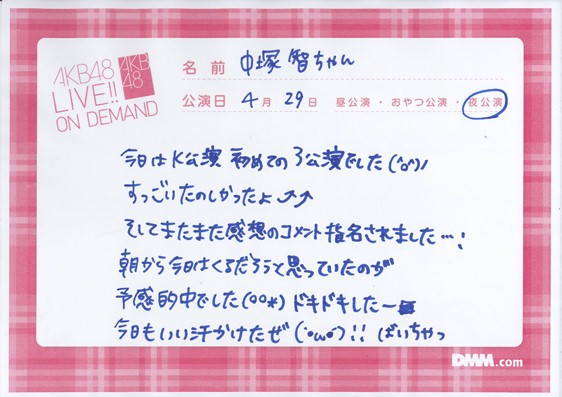 AKB48
LIVE!!
ON DEMAND
AKB
48
名前 中塚智ちゃん
公演日 4月29日 昼公演・おやつ公演・夜公演
今日はK公演 初めての3公演でした(^o^)/
すっごいたのしかったよ↗↗
そしてまたまた感想のコメント指名されました…!
朝から今日はくるだろうと思っていたのが
予感的中でした(°°*) ドキドキしたー
今日もいい汗かけたぜ(`・ω・´)!! ばいちゃっ
DMM.com